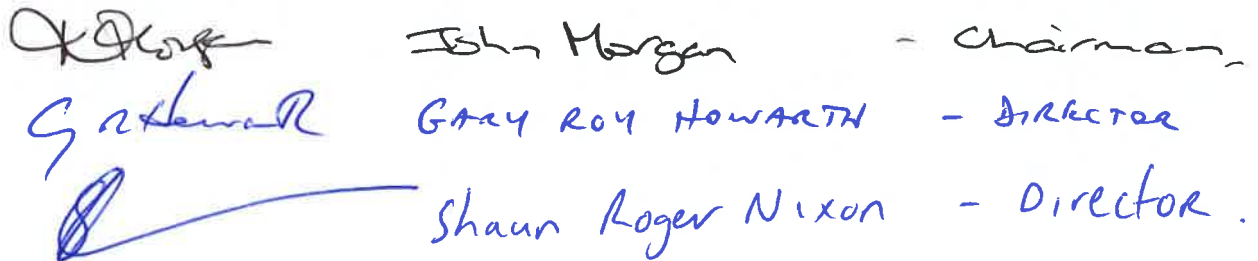 John Morgan - Chairman
G R Howarth GARY ROY HOWARTH - DIRECTOR
Shaun Roger Nixon - Director.